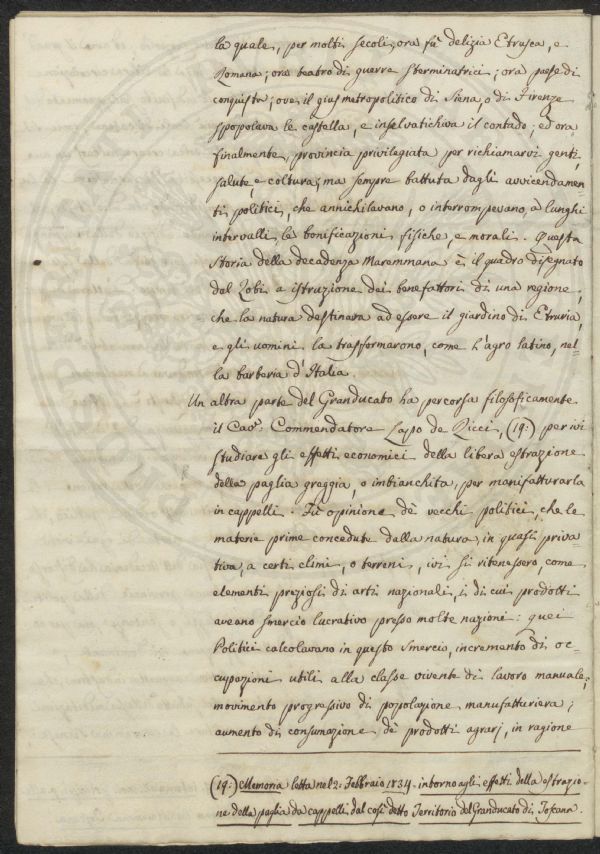 la quale, per molti secoli, ora fù delizia Etrusca, e
Romana; ora teatro di guerre sterminatrici; ora paese di
conquista; ove il gius metropolitico di Siena, o di Firenze
spopolava le castella, e inselvatichiva il contado; ed ora
finalmente, provincia privilegiata per richiamarvi genti,
salute, e coltura; ma sempre battuta dagli avvicendamen=
ti politici, che annichilavano, o interrompevano, a lunghi
intervalli, le bonificazioni fisiche, e morali. Questa
Storia della decadenza Maremmana è il quadro disegnato
dal Zobi a istruzione dei benefattori di una regione,
che la natura destinava ad essere il giardino di Etruria,
e gli uomini la trasformarono, come l'agro latino, nel=
la barberia d'Italia.
Un altra parte del Granducato ha percorsa filosoficamente
il Cav.r Commendatore Lapo de Ricci, (19:) per ivi
studiare gli effetti economici della libera estrazione
della paglia greggia, o imbianchita, per manifatturarla
in cappelli. Fù opinione dè vecchi politici, che le
materie prime concedute dalla natura, in quasi priva=
tiva, a certi climi, o terreni, ivi si ritenessero, come
elementi preziosi di arti nazionali, i di cui prodotti
aveano smercio lucrativo presso molte nazioni: quei
Politici calcolavano in questo smercio, incremento di oc=
cupazioni utili alla classe vivente di lavoro manuale;
movimento progressivo di popolazione manufatturiera;
aumento di consumazione dè prodotti agrarj, in ragione
(19:) Memoria letta nel 2. Febbraio 1834. intorno agli effetti della estrazio=
ne della paglia da cappelli dal così detto Territorio del Granducato di Toscana.